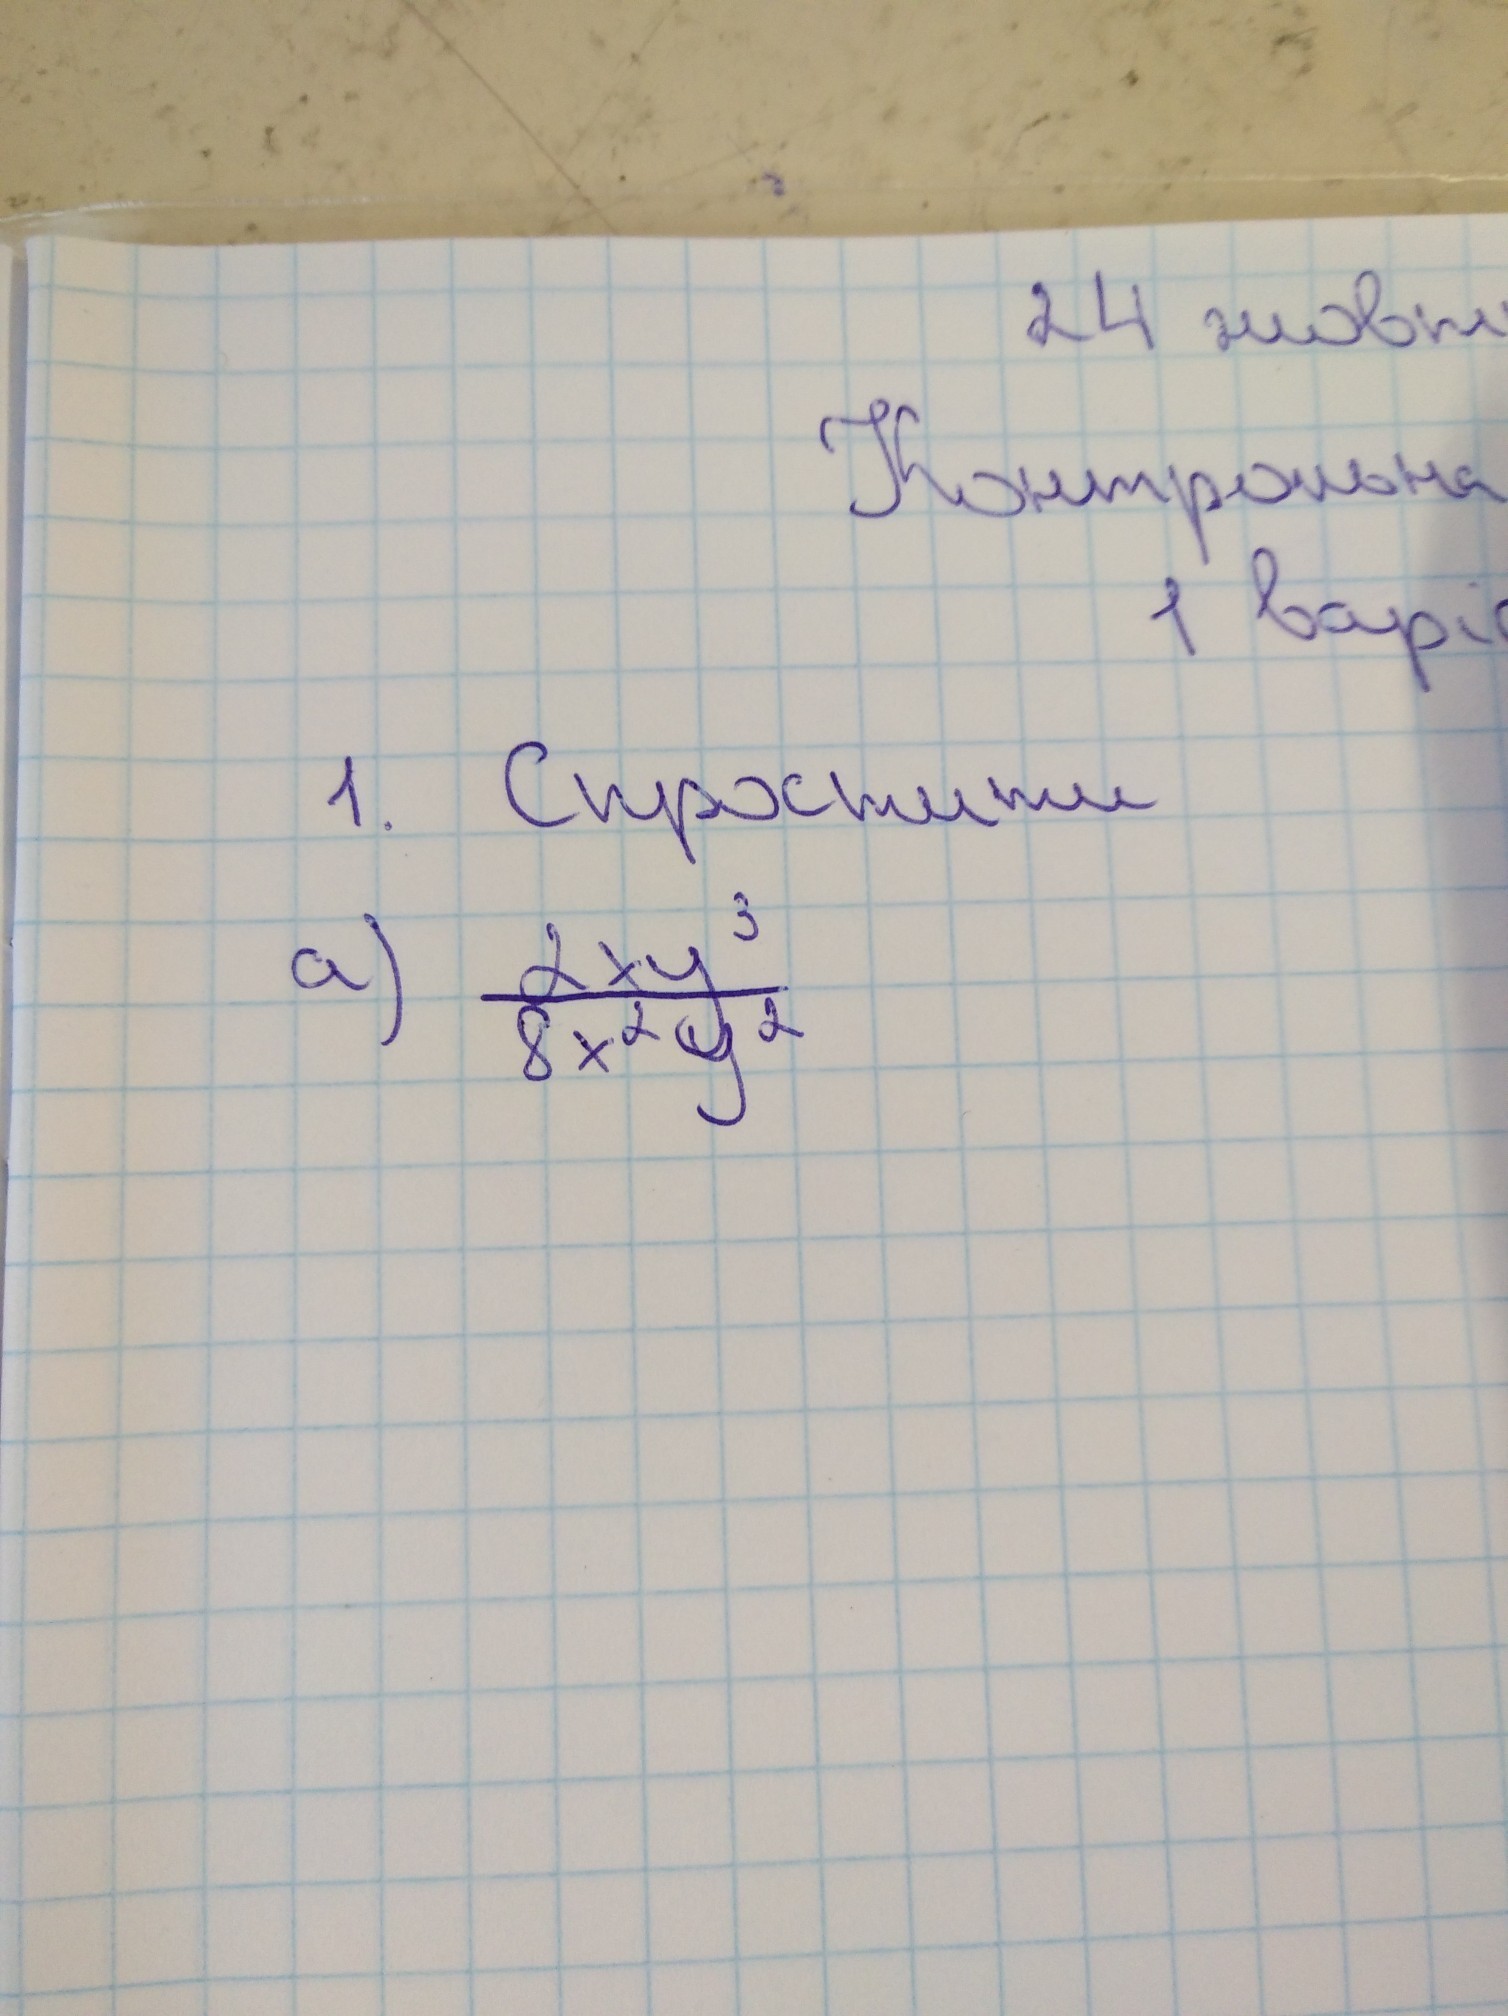 24 жовтн
Контрольна
1 варіа
1. Спростити
а) 2xy³
8x²y²